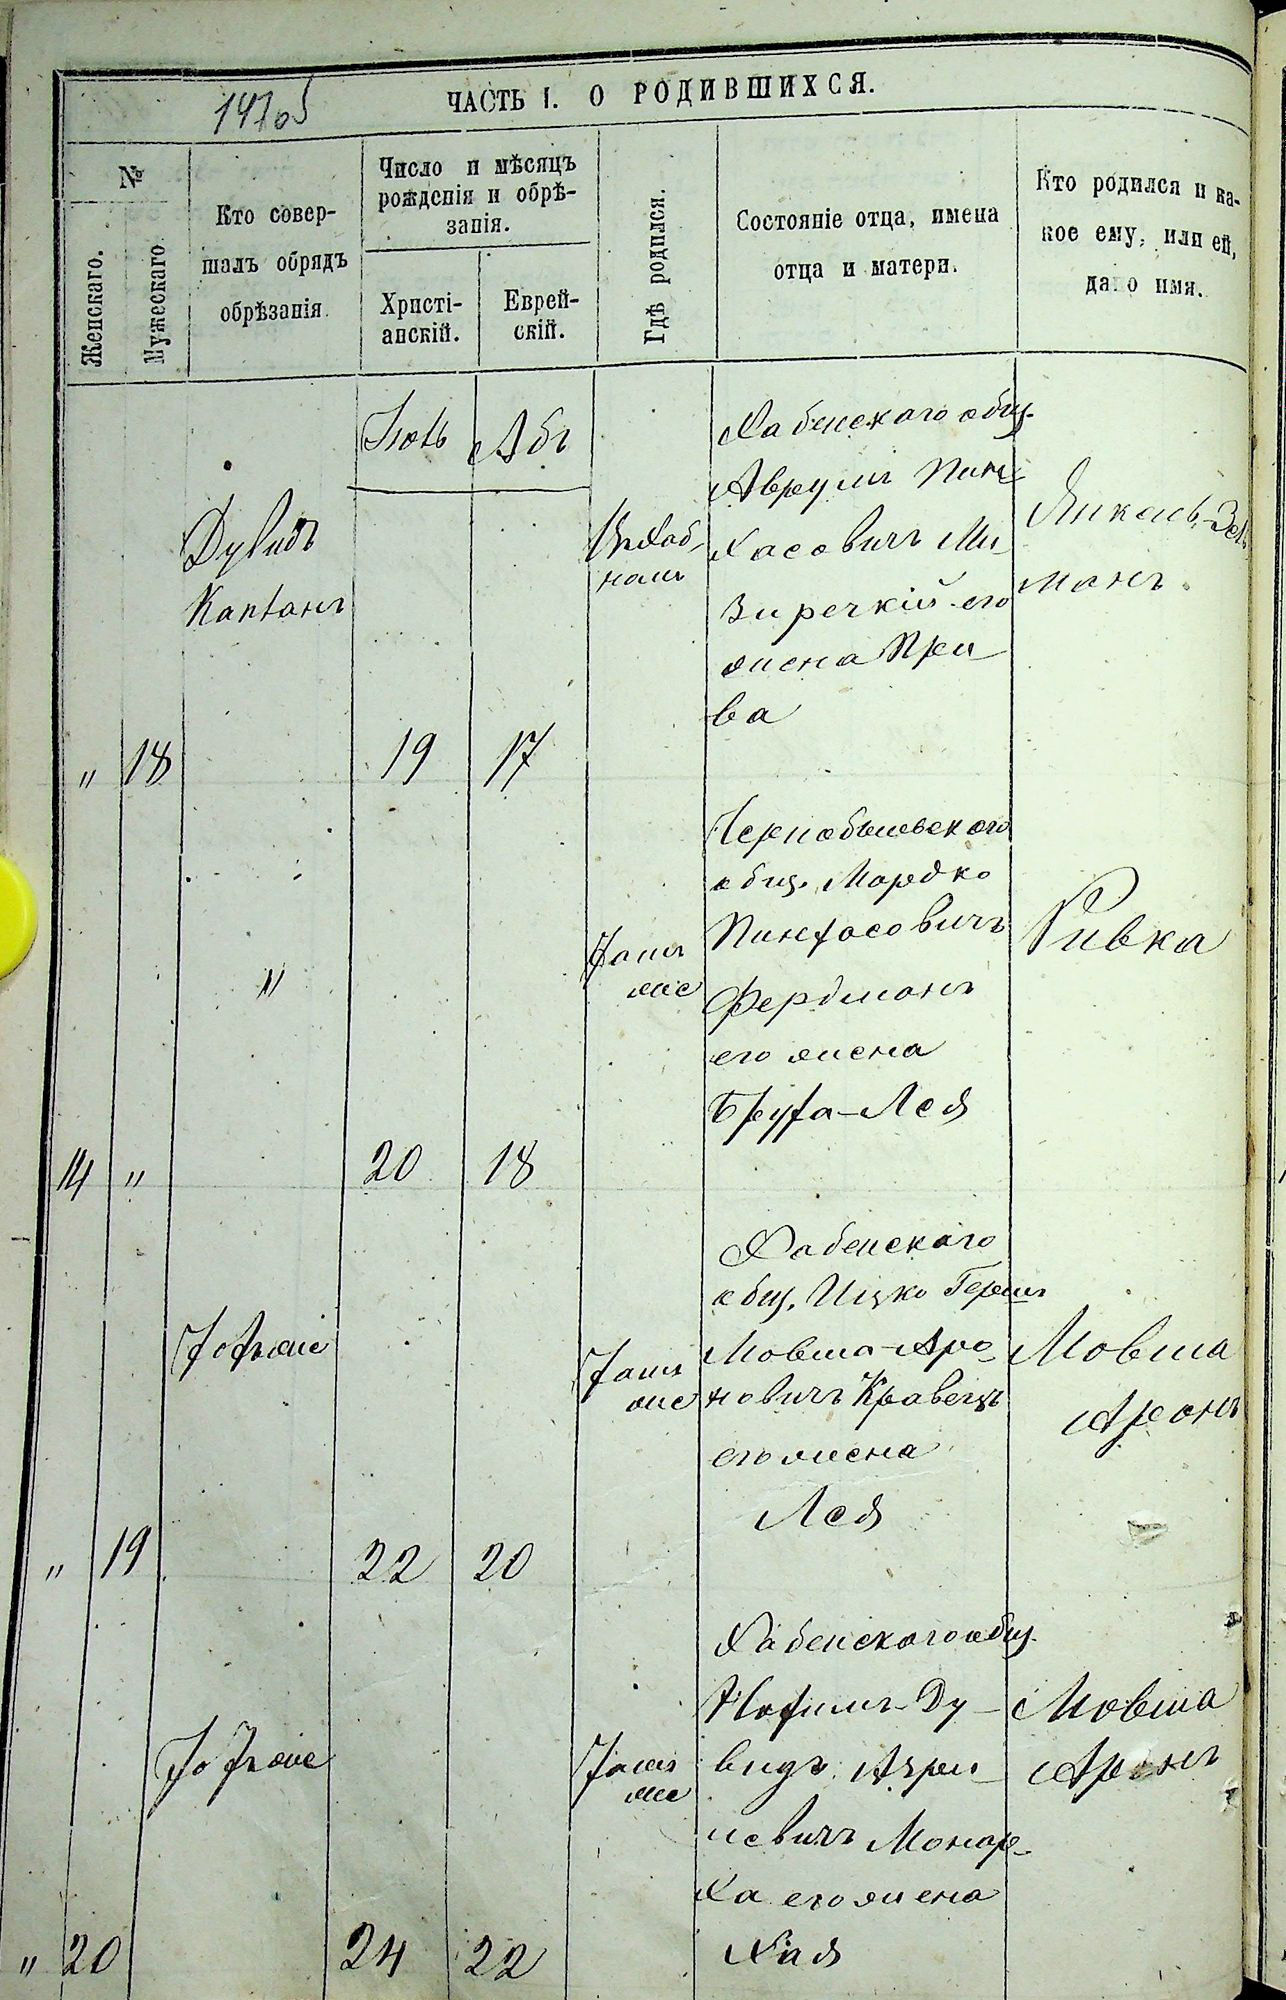 ЧАСТЬ I. О РОДИВШИХСЯ.
№
Женскаго.
Мужескаго
Кто совер-
шалъ обрядъ
обрѣзанія.
Число и мѣсяцъ
рожденія и обрѣ-
занія.
Христі-
анскій.
Еврей-
скій.
Гдѣ родился.
Состояніе отца, имена
отца и матери.
Кто родился и ка-
кое ему, или ей,
дано имя.
" 18
Дувидъ
Капланъ
Іюль
19
Абъ
17
Въ Хаб-
номъ
Хабенскаго общ.
Аврумъ Пин-
хасовичъ Ми-
зиречкій его
жена Прей-
ва
Янкель-Зель
манъ.
14 "
"
20
18
Тамъ
же
Чернобыльскаго
общ. Мордко
Пинхасовичъ
Фердманъ
его жена
Бруха-Лея
Ривка
" 19
Тотъ же
22
20
Тамъ
же
Хабенскаго
общ. Ицко Гершъ
Мовша-Аро-
новичъ Кравецъ
его жена
Лея
Мовша
Аронъ
" 20
Тотъ же
24
22
Тамъ
же
Хабенскаго общ.
Ду-
видъ
Монар-
ха его жена
Хая
Мовша
Аронъ